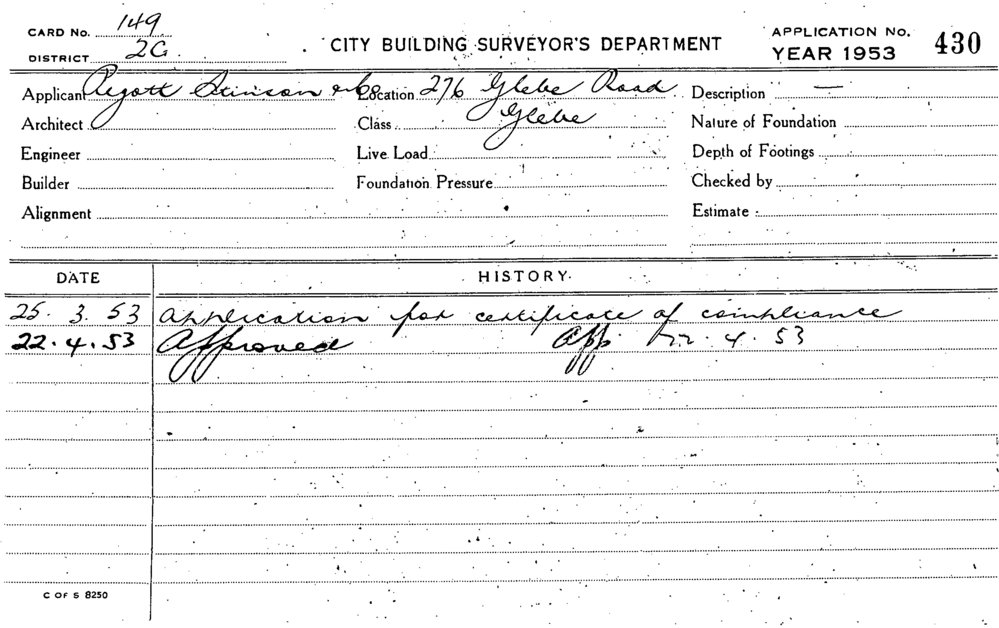 CARD No. 149
DISTRICT 2G.
CITY BUILDING SURVEYOR'S DEPARTMENT
APPLICATION No.
YEAR 1953
430
Applicant Pigott Stinson & Co Location 276 Glebe Road Description —
Architect Class Glebe Nature of Foundation
Engineer Live Load Depth of Footings
Builder Foundation Pressure Checked by
Alignment Estimate
DATE HISTORY
25. 3. 53 Application for certificate of compliance
22. 4. 53 Approved App. 22. 4. 53
C OF S 8250